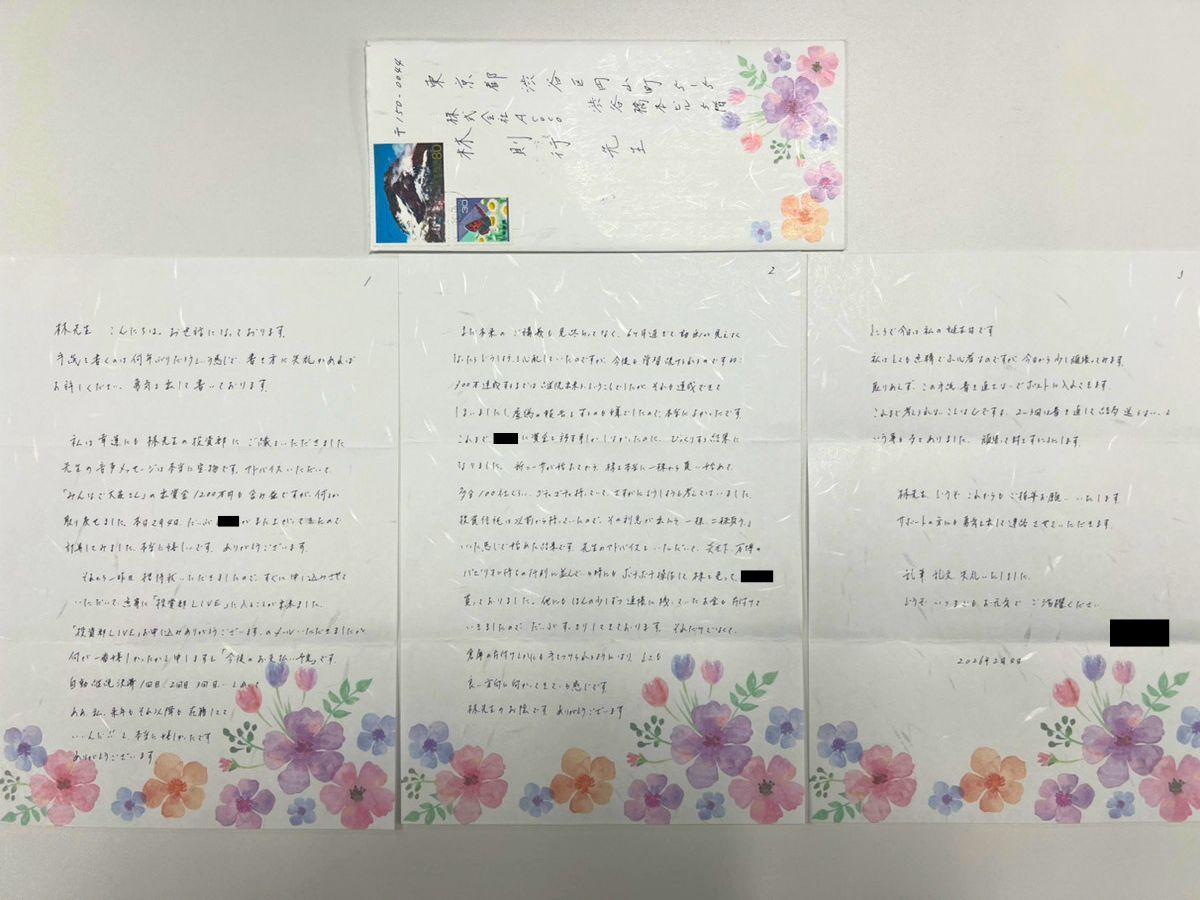 〒150-0044
東京都渋谷区円山町5-5
渋谷橋本ビル5階
株式会社Acoco
林 則行 先生
80
30
1
林先生 こんにちは。お世話になっております。
手紙を書くのは何年ぶりだろうという感じで、書き方に失礼があれば
お許しください。勇気を出して書いております。
私は幸運にも林先生の投資部にご縁をいただきました
先生の音声メッセージは本当に宝物です。アドバイスいただいて、
「みんなで大家さん」の出資金1200万円も含み益ですが、何とか
取り戻せました。本日2月4日、だいぶ がまた上がってきたので
計算してみました。本当に嬉しいです。ありがとうございます。
それから一昨日 招待状いただきましたので、すぐに申し込みさせて
いただいて、無事に「投資部LIVE」に入ることが出来ました。
「投資部LIVE」お申し込みありがとうございます。のメールいただきましたが
何が一番嬉しかったかと申しますと「今後のお支払い予定」です。
自動継続決済 1回目 2回目 3回目
ああ、私、来年もそれ以降も在籍してて
いいんだ!! と、本当に嬉しかったです
ありがとうございます
2
まだ本来のご構義も見終わってなく、6ヶ月過ぎて動画が見えなく
なったらどうしようと心配していたのですが、今後も学習続けられるのですね!
300万達成するまでは継続出来るということでしたが、それも達成できて
しまいましたし、虚偽の報告をするのも嫌でしたので、本当によかったです。
これまで、 に資金を移す事しかしなかったのに、びっくりする結果に
なりました。新NISAが始まってから、株を本当に一株から買い始めて、
多分100社くらい、グチャグチャ持っていて、さすがにどうしようと考えてはいました。
投資信託は以前から持っていたので、その利息が出たら一株、二株買う。と
いった感じで始めた結果です。先生のアドバイスをいただいて、炎天下、万博の
パビリオン待ちの行列に並んでいる時にもポチポチ操作して株を売って、
買っておりました。他にもほんの少しずつ証券に残っていたお金も片付けて
いきましたので、だいぶすっきりしてきております。それだけでなくて、
倉庫の片付けなんかにも手をつけられるようになり、とても
良い方向に向かってきている感じです
林先生のお陰です ありがとうございます
3
ところで今日は私の誕生日です
私はとても点稿でふん者なのですが、今日から少し頑張ってみます。
取りあえず、この手紙、書き直さないでポストに入れてきます。
これまで考えられないことなんですよ。2〜3回は書き直して結局送らない、と
いう事も多々ありました。頑張って封をすることにします。
林先生、どうぞこれからもご指導お願いいたします
サポートの方にも勇気を出して連絡させていただきます。
乱筆 乱文 失礼いたしました。
どうぞ いつまでもお元気で ご活躍ください。
2026年2月4日